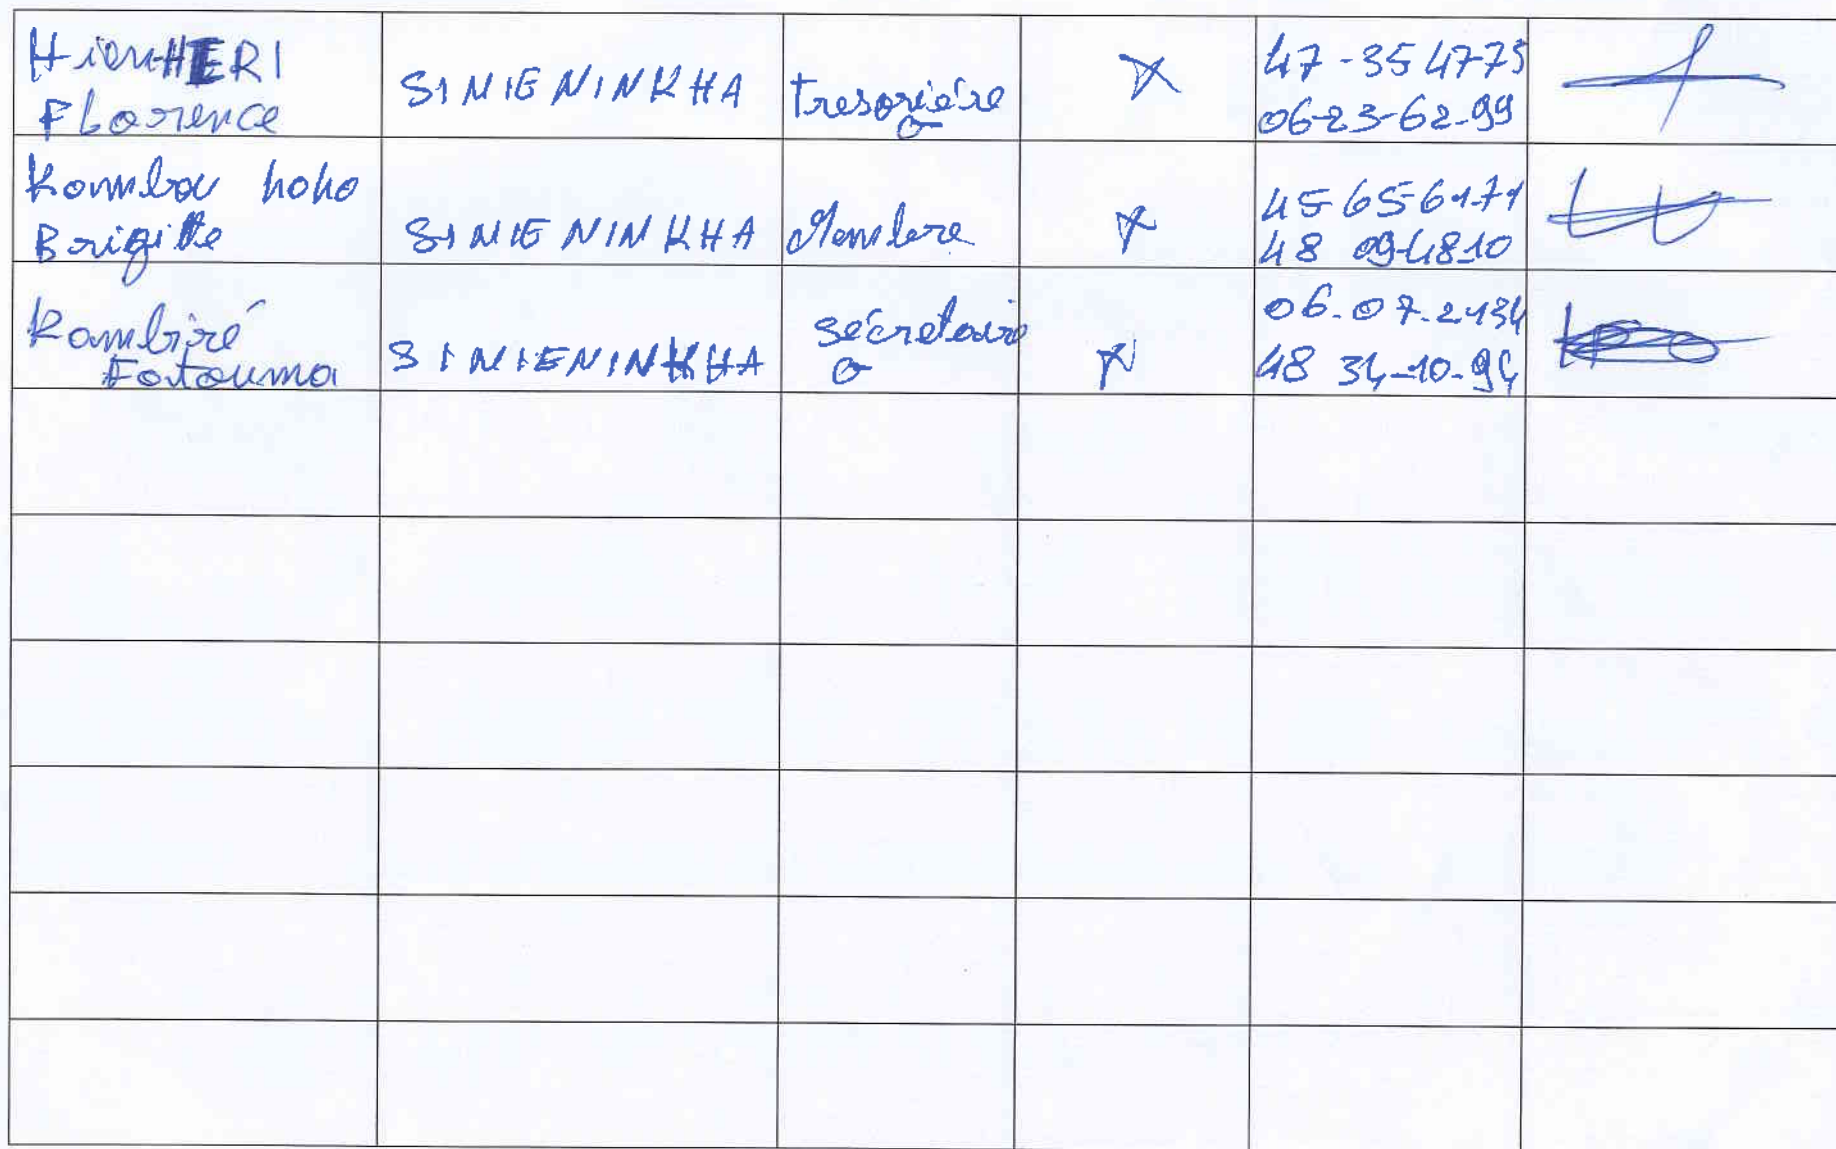 HienHERI
Florence
SINIENINKHA
Tresorière
47-35 47 75
06-23-62-99
Kombou hoho
Brigitte
SINIENINKHA
Membre
45 65 61 71
48 09 48 10
Kambiré
Fatouma
SINIENINKHA
sécretaire
06.07.21 34
48 34-10-94